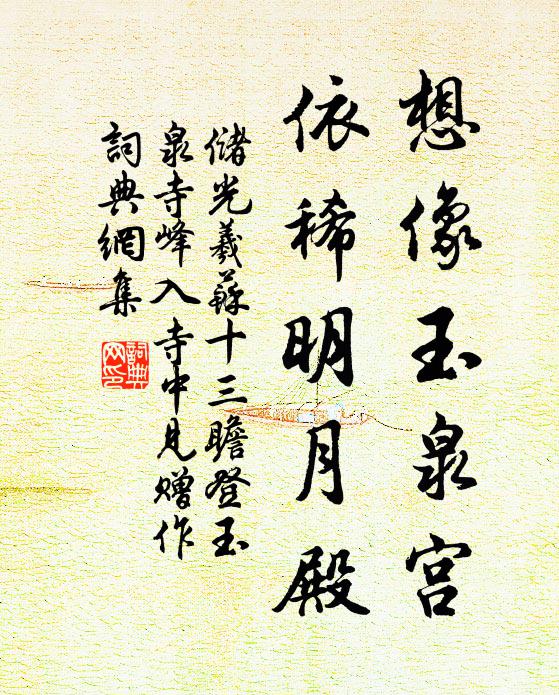 想像玉泉宫
依稀明月殿
儲光羲蘇十三瞻登玉
泉寺峰入寺中見贈作
詞典網集
詞典
网印